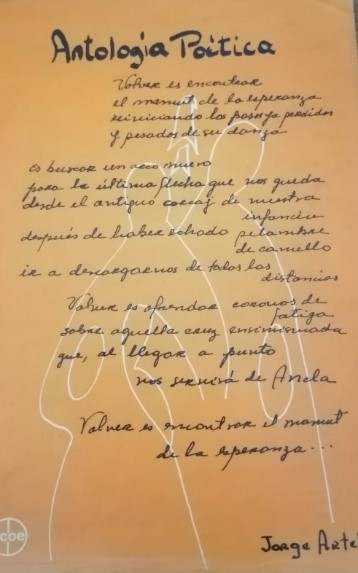 Antología Poética
Volver es encontrar
el manuel de la esperanza
reiniciando los pasos ya perdidos
y pesados de su danza
es buscar un arco nuevo
para la última flecha que nos queda
desde el antiguo carcaj de nuestra
infancia
después de haber echado pelambre
de camello
ir a descargarnos de todas las
distancias
Volver es ofrendar coronas de
fatiga
sobre aquella cruz ensimismada
que, al llegar a punto
nos servirá de Ancla
Volver es encontrar el
de la esperanza...
coe
Jorge Artel